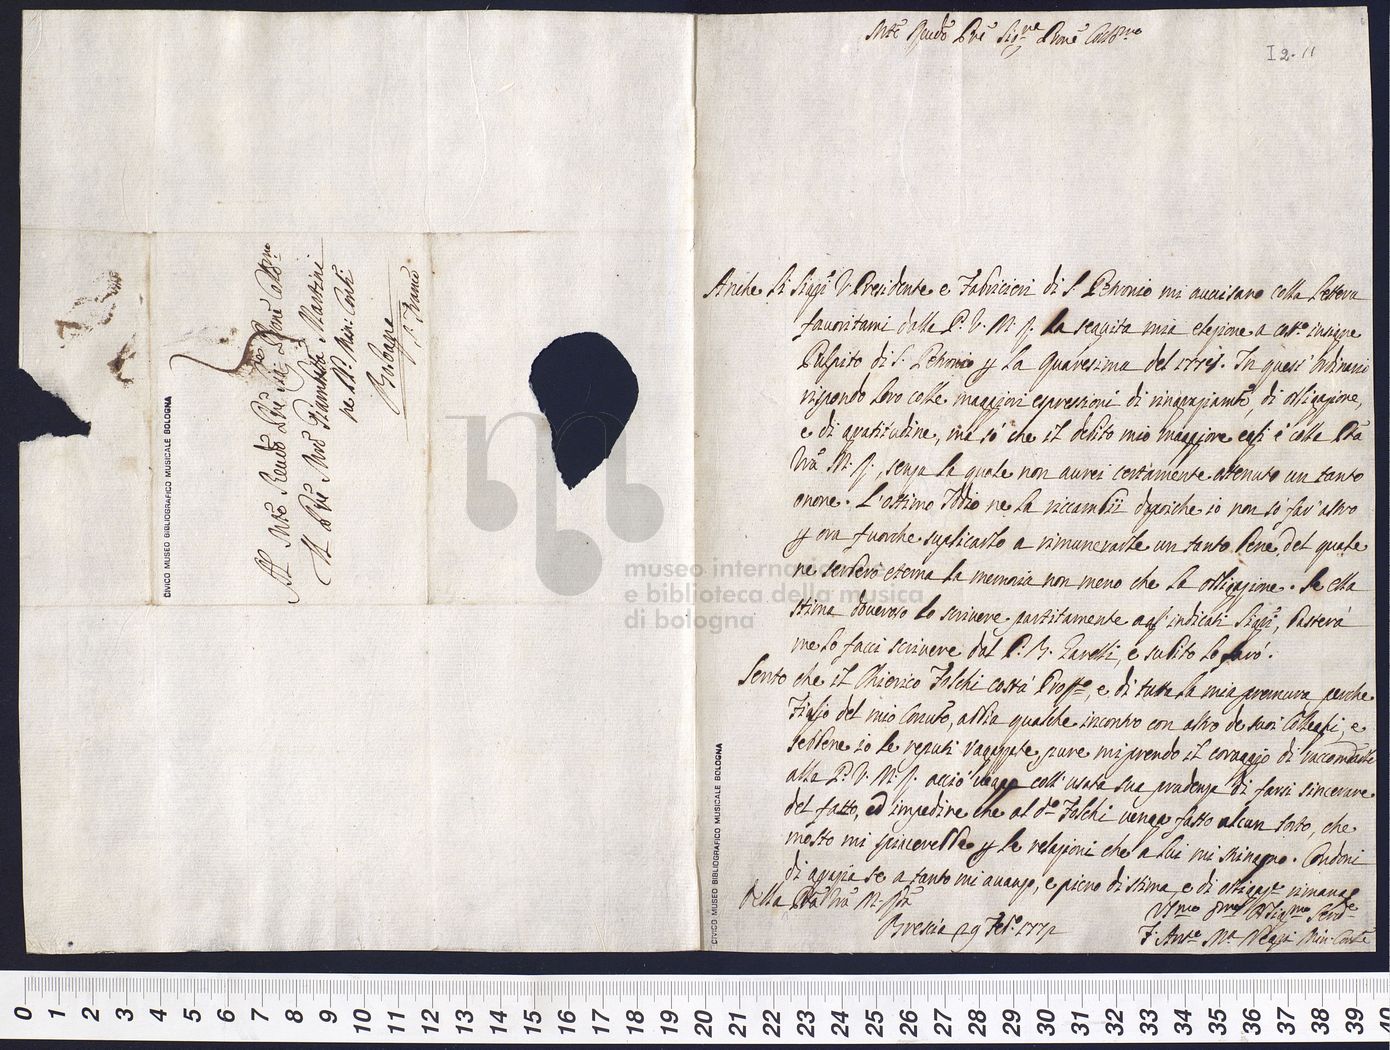 Al Mto Revdo Pre Sig. Prone Colmo
Il Pre Mro Giambatta Martini
pe Rl. Min: Contli
Bologna
S. Franco
CIVICO MUSEO BIBLIOGRAFICO MUSICALE BOLOGNA
Mto Revdo Pre Sigre Prone Colmo
I 2. 11
Anche li Siggri V. Presidente e Fabricieri di S. Petronio mi avvisano colla Lettera
favoritami dalla P. V. M. R. la seguita mia elezione a cotto insigne
Pulpito di S. Petronio p la Quaresima del In quest' Ordinario
rispondo loro colle maggiori espressioni di ringraziamto, di obligazione,
e di gratitudine, ma sò che il debito mio maggiore egli è colla Ptà
Vrà M. R., senza la quale non avrei certamente ottenuto un tanto
onore. L'ottimo Iddio ne la riccambii dapoiche io non sò far altro
p ora fuorche suplicarlo a rimunerarla un tanto bene, del quale
ne serberò eterna la memoria non meno che la obligazione. Se ella
stima doveroso lo scrivere partitamente agl' indicati Siggri, basterà
me lo facci scrivere dal P. B. Zaretti, e subito lo farò.
Sento che il Chierico Foschi costà Proffo, e di tutta la mia premura perche
Figlio del mio Convto, abbia qualche incontro con altro de suoi Colleghi, e
sebbene io le reputi ragazzate, pure mi prendo il coraggio di raccomdarlo
alla P. V. M. R. acciò coll' usata sua prudenza di farsi sincerare
del fatto, ed impedire che al do Foschi venga fatto alcun torto, che
molto mi spincerebbe p le relazioni che a lui mi stringono. Condoni
di grazia se a tanto mi avanzo, e pieno di stima, e di obligaze rimango
Della Ptà Vrà M. Rda
Brescia 29 Febo 1772
Vmo Dmo Obligmo Servre
F. Anto Ma Min. Conle
CIVICO MUSEO BIBLIOGRAFICO MUSICALE BOLOGNA
museo internazionale
e biblioteca della musica
di bologna
0 1 2 3 4 5 6 7 8 9 10 11 12 13 14 15 16 17 18 19 20 21 22 23 24 25 26 27 28 29 30 31 32 33 34 35 36 37 38 39 40